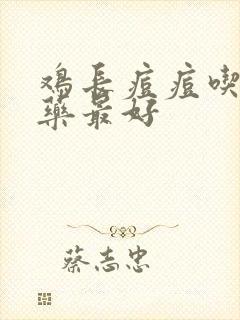 鸡長痘痘喫
藥最好
蔡志忠